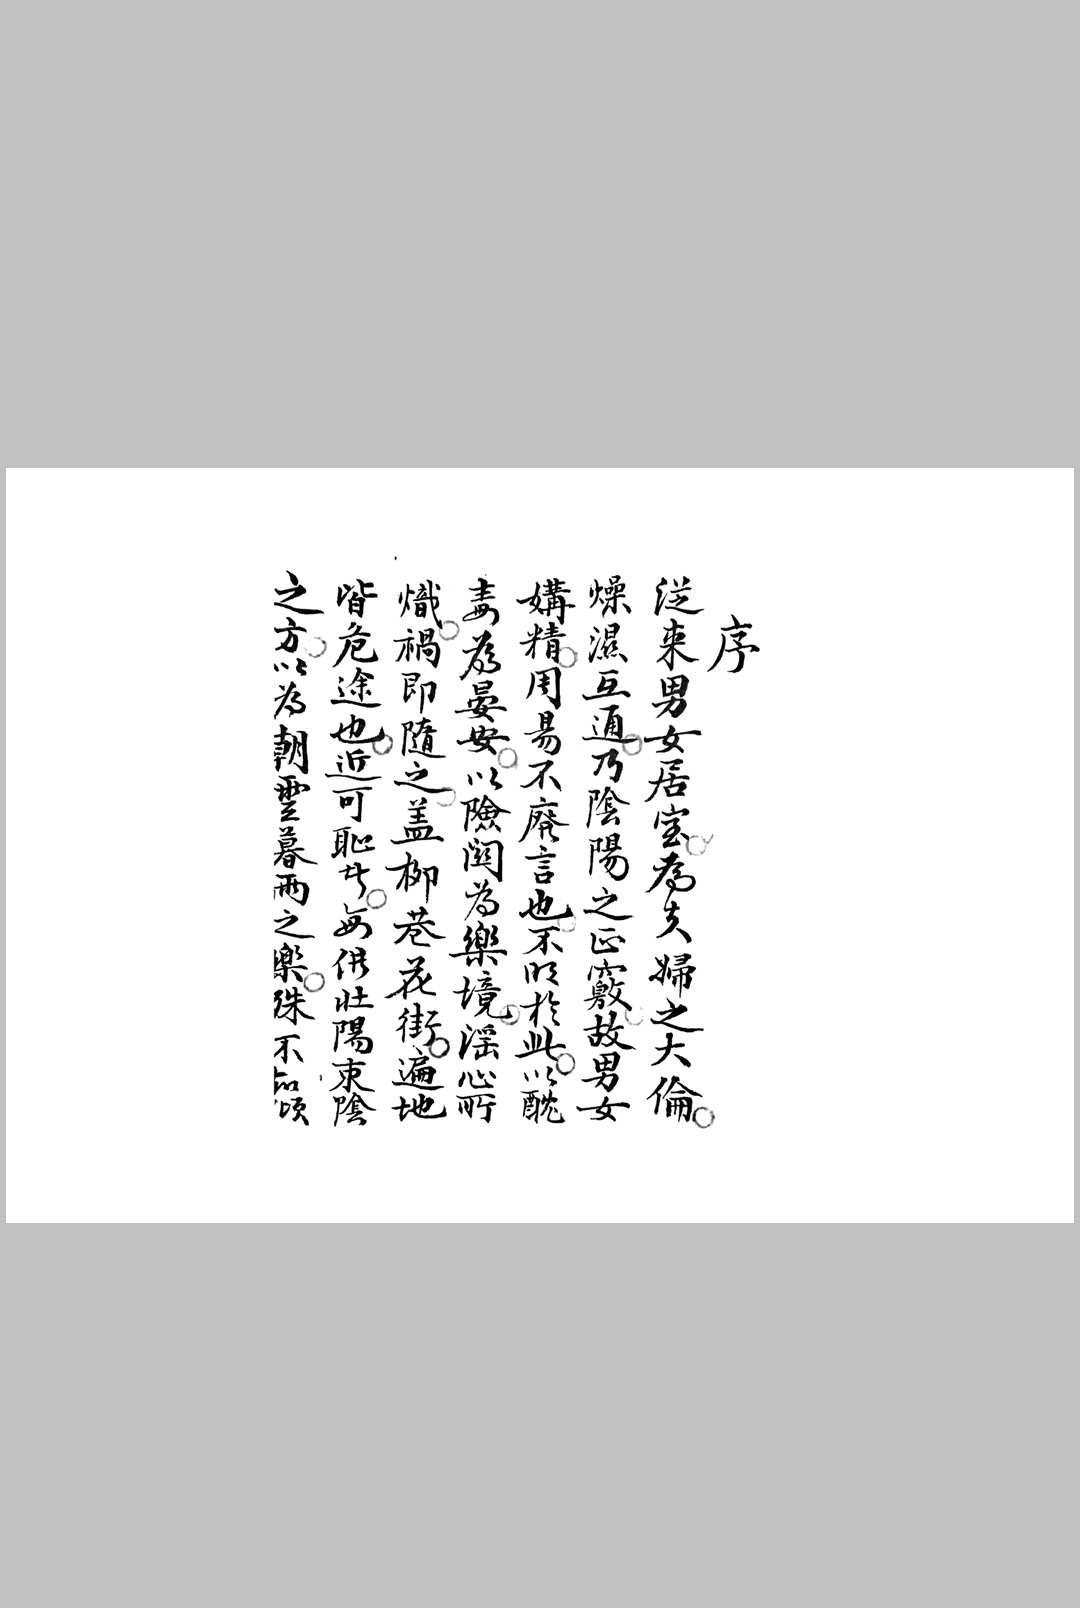 序
從来男女居室為夫婦之大倫
燥濕互通乃陰陽之正竅故男女
媾精周易不廢言也不明於此以酖
毒為晏安以險閃為樂境淫心所
熾禍即隨之盖柳巷花街遍地
皆危途也近可恥者毎供壯陽束陰
之方以為朝雲暮雨之樂殊不知頃